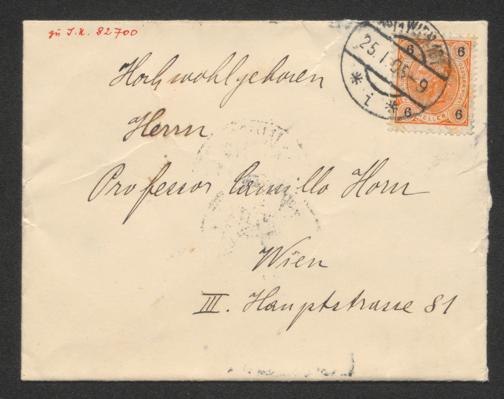 zu I.N. 82700
WIEN
25. I. 05 - 9
* 1 *
6 6
HELLER
6 6
Hochwohlgeboren
Herrn
Professor Camillo Horn
Wien
III. Hauptstrasse 81